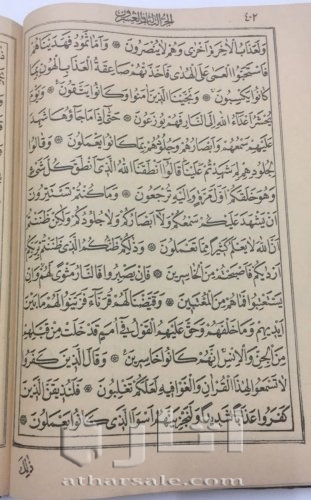 ٤٠٢
الجزء الرابع والعشرون
ولعذاب الاخرة اخزى وهم لا ينصرون ۞ واما ثمود فهديناهم
فاستحبوا العمى على الهدى فاخذتهم صاعقة العذاب الهون بما
كانوا يكسبون ۞ ونجينا الذين امنوا وكانوا يتقون ۞ ويوم
يحشر اعداء الله الى النار فهم يوزعون ۞ حتى اذا ما جاؤها شهد
عليهم سمعهم وابصارهم وجلودهم بما كانوا يعملون ۞ وقالوا
لجلودهم لم شهدتم علينا قالوا انطقنا الله الذى انطق كل شئ
وهو خلقكم اول مرة واليه ترجعون ۞ وما كنتم تستترون
ان يشهد عليكم سمعكم ولا ابصاركم ولا جلودكم ولكن ظننتم
ان الله لا يعلم كثيرا مما تعملون ۞ وذلكم ظنكم الذى ظننتم بربكم
ارديكم فاصبحتم من الخاسرين ۞ فان يصبروا فالنار مثوى لهم وان
يستعتبوا فما هم من المعتبين ۞ وقيضنا لهم قرناء فزينوا لهم ما بين
ايديهم وما خلفهم وحق عليهم القول فى امم قد خلت من قبلهم
من الجن والانس انهم كانوا خاسرين ۞ وقال الذين كفروا
لا تسمعوا لهذا القران والغوا فيه لعلكم تغلبون ۞ فلنذيقن الذين
كفروا عذابا شديدا ولنجزينهم اسوا الذى كانوا يعملون ۞
ذلك
atharsale.com